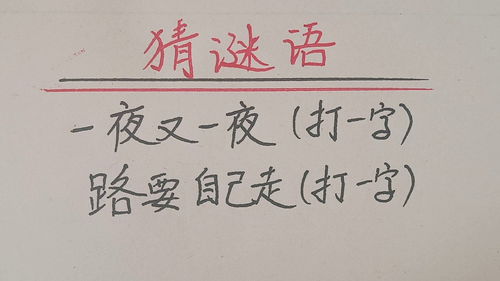 猜谜语
一夜又一夜(打一字)
路要自己走(打一字)